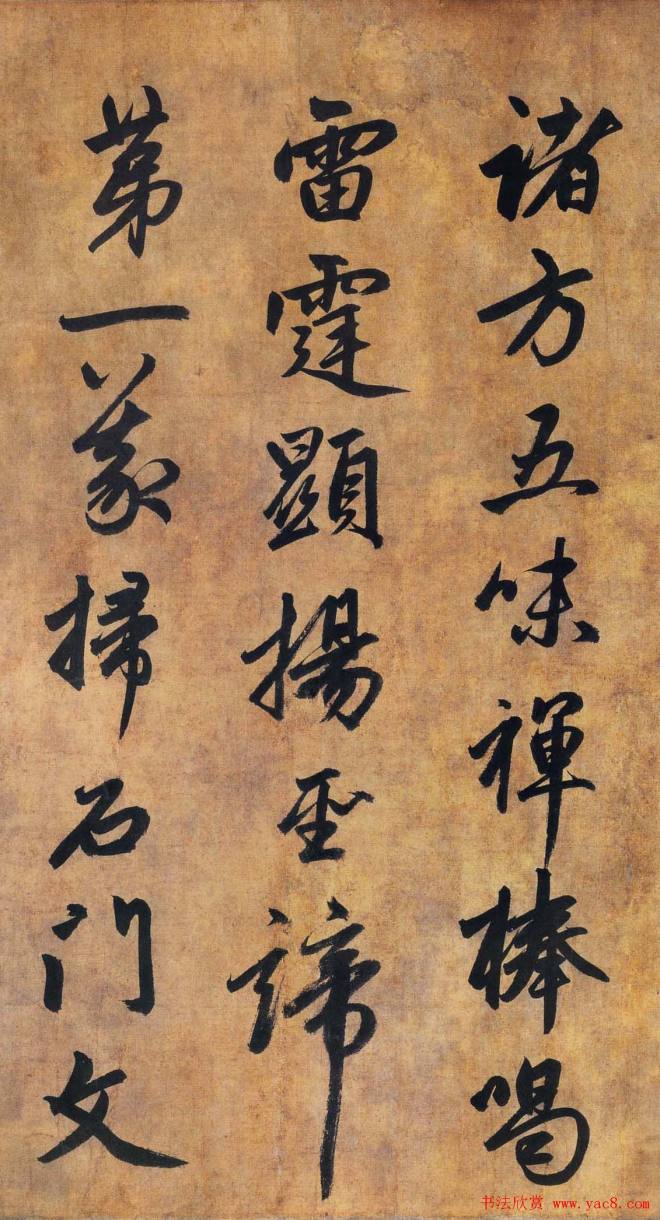 诸方五味禅棒喝
雷霆顯揚聖諦
第一義掃石门文
书法欣赏 www.yac8.com